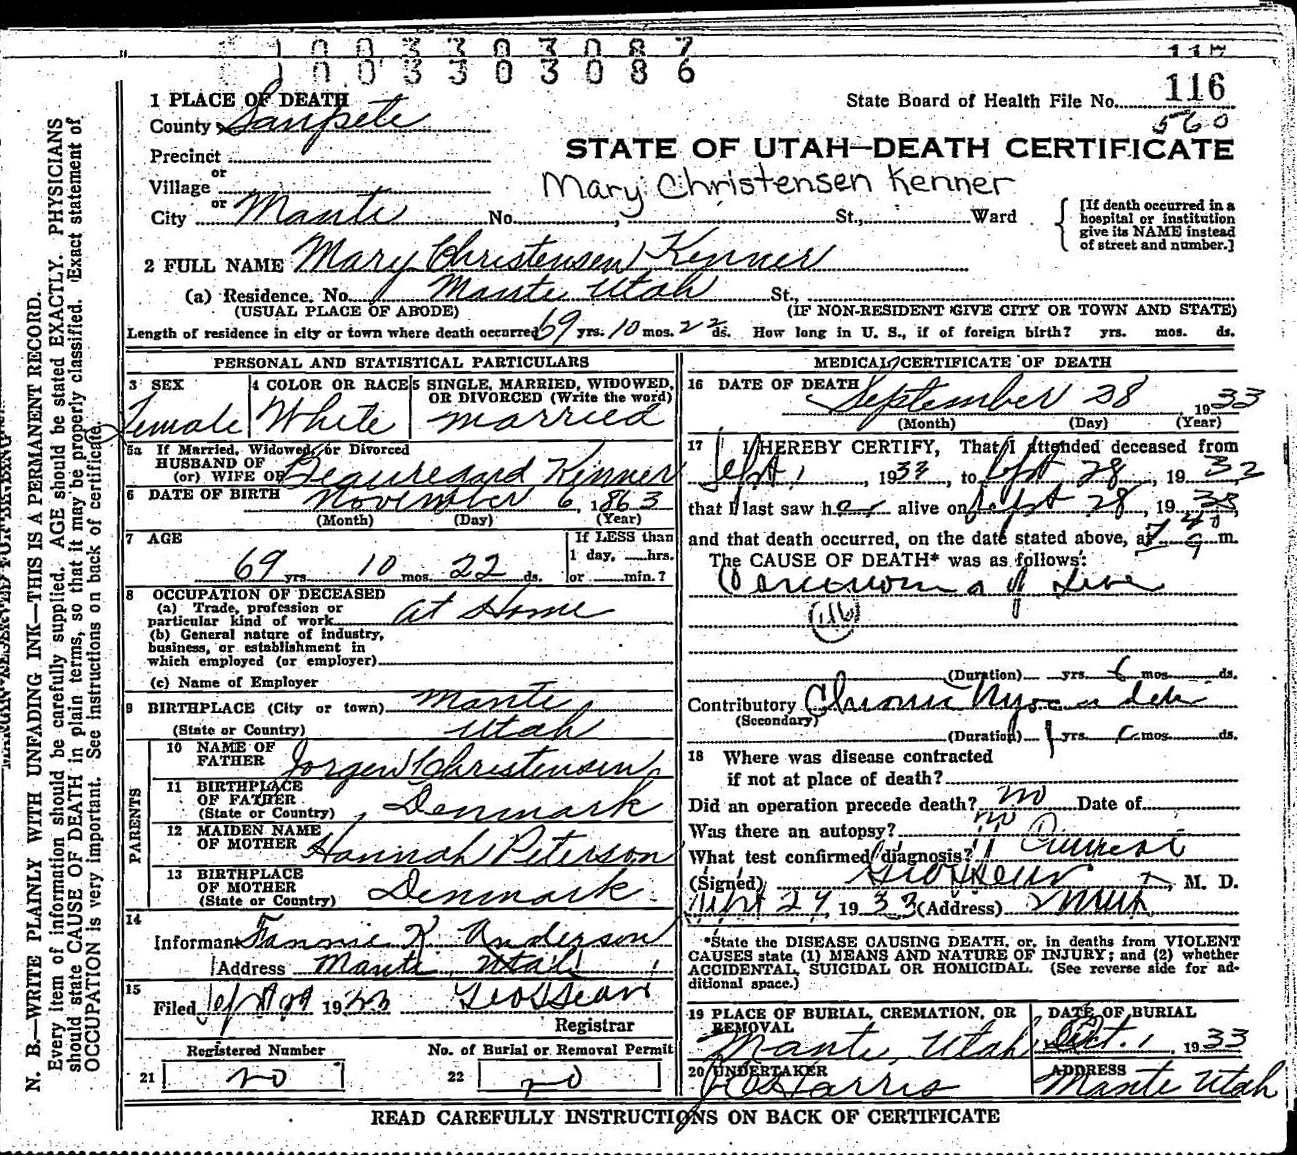 1 0 0 3 3 0 3 0 8 7
1 0 0 3 3 0 3 0 8 6
117
1 PLACE OF DEATH
State Board of Health File No. 116
County Sanpete
560
Precinct
STATE OF UTAH—DEATH CERTIFICATE
or
Village
Mary Christensen Kenner
or
City Manti No. St., Ward
[If death occurred in a hospital or institution give its NAME instead of street and number.]
2 FULL NAME Mary Christensen Kenner
(a) Residence. No. Manti Utah St.,
(USUAL PLACE OF ABODE) (IF NON-RESIDENT GIVE CITY OR TOWN AND STATE)
Length of residence in city or town where death occurred 69 yrs. 10 mos. 22 ds. How long in U. S., if of foreign birth? yrs. mos. ds.
PERSONAL AND STATISTICAL PARTICULARS
3 SEX
Female
4 COLOR OR RACE
White
5 SINGLE, MARRIED, WIDOWED,
OR DIVORCED (Write the word)
married
5a If Married, Widowed, or Divorced
HUSBAND OF
(or) WIFE OF Beauregard Kenner
6 DATE OF BIRTH November 6, 1863
(Month) (Day) (Year)
7 AGE
69 yrs. 10 mos. 22 ds.
If LESS than
1 day, hrs.
or min.?
8 OCCUPATION OF DECEASED
(a) Trade, profession or
particular kind of work at Home
(b) General nature of industry,
business, or establishment in
which employed (or employer)
(c) Name of Employer
9 BIRTHPLACE (City or town) Manti
(State or Country) Utah
PARENTS
10 NAME OF
FATHER Jorgen Christensen
11 BIRTHPLACE
OF FATHER
(State or Country) Denmark
12 MAIDEN NAME
OF MOTHER Hannah Peterson
13 BIRTHPLACE
OF MOTHER
(State or Country) Denmark
14
Informant Fannie K Anderson
Address Manti, Utah
15
Filed Sept 29 1933
Registrar
Registered Number
21 20
No. of Burial or Removal Permit
22 20
MEDICAL CERTIFICATE OF DEATH
16 DATE OF DEATH
September 28 1933
(Month) (Day) (Year)
17 I HEREBY CERTIFY, That I attended deceased from
Sept 1, 1933, to Sept 28, 1933
that I last saw her alive on Sept 28, 1933,
and that death occurred, on the date stated above, at m.
The CAUSE OF DEATH* was as follows:
Carcinoma of Liver
(Duration) yrs. 6 mos. ds.
Contributory Chronic
(Secondary)
(Duration) 1 yrs. mos. ds.
18 Where was disease contracted
if not at place of death?
Did an operation precede death? no Date of
Was there an autopsy? no
What test confirmed diagnosis?
(Signed) , M. D.
Sept 29 1933 (Address) Manti
*State the DISEASE CAUSING DEATH, or, in deaths from VIOLENT
CAUSES state (1) MEANS AND NATURE OF INJURY; and (2) whether
ACCIDENTAL, SUICIDAL OR HOMICIDAL. (See reverse side for ad-
ditional space.)
19 PLACE OF BURIAL, CREMATION, OR
REMOVAL
Manti, Utah
DATE OF BURIAL
Oct. 1 1933
20 UNDERTAKER
Harris
ADDRESS
Manti Utah
READ CAREFULLY INSTRUCTIONS ON BACK OF CERTIFICATE
N. B.—WRITE PLAINLY WITH UNFADING INK—THIS IS A PERMANENT RECORD.
Every item of information should be carefully supplied. AGE should be stated EXACTLY. PHYSICIANS
should state CAUSE OF DEATH in plain terms, so that it may be properly classified. Exact statement of
OCCUPATION is very important. See instructions on back of certificate.